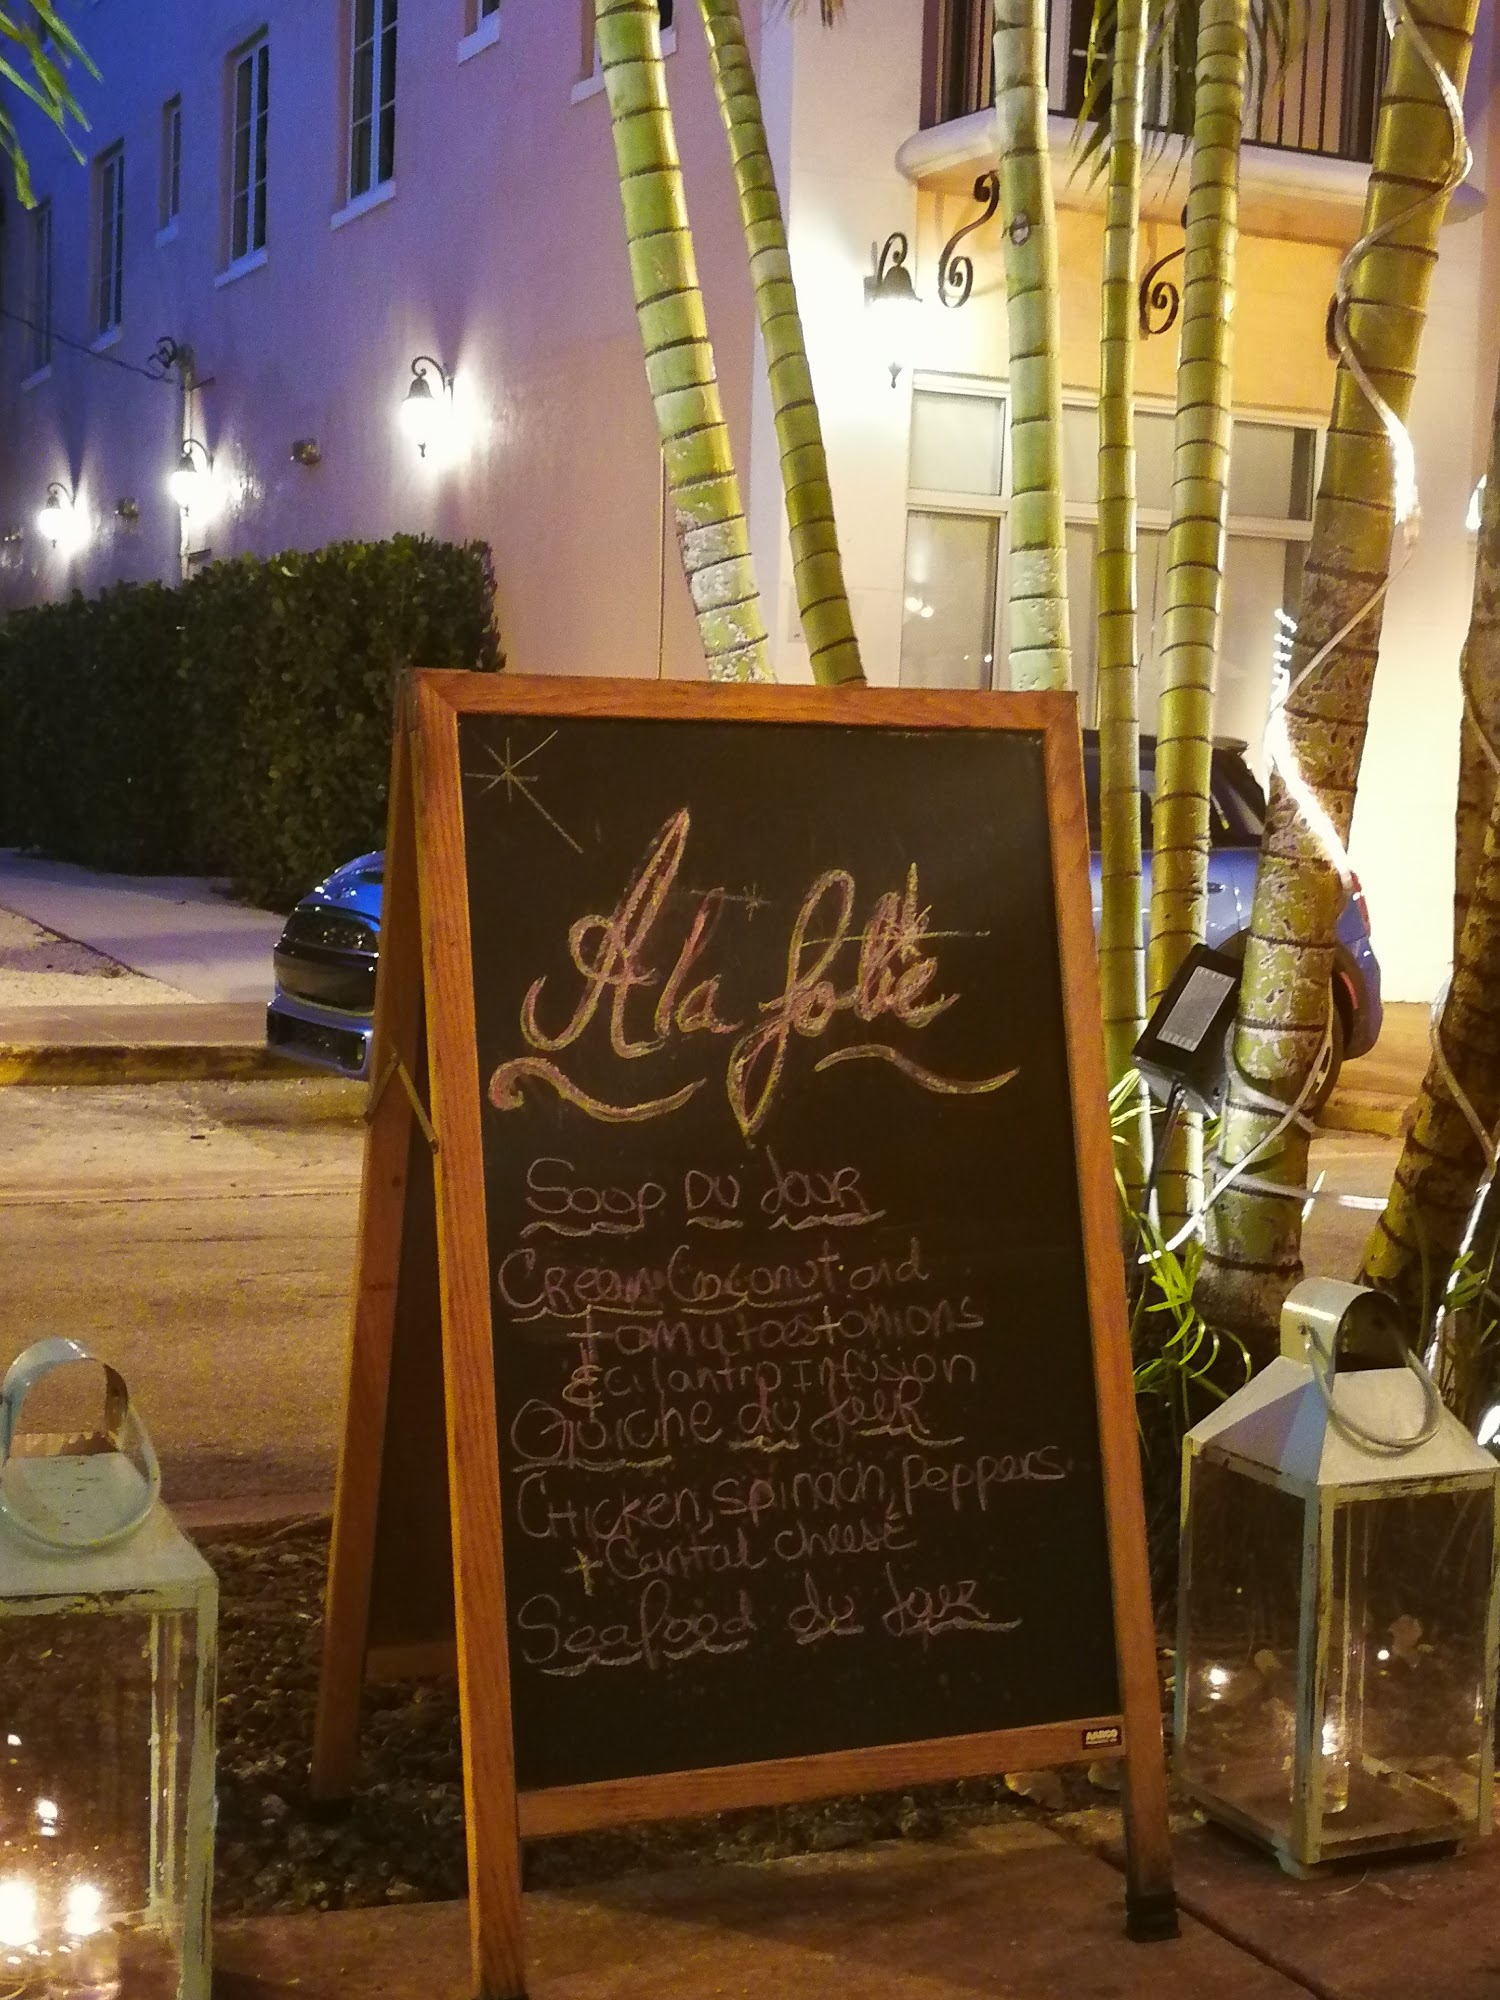 A la folie
Soup Du Jour
Cream Coconut and
tomy toes + onions
& cilantro Infusion
Quiche du jour
Chicken, spinach, peppers
+ Cantal cheese
Seafood du jour
AARCO